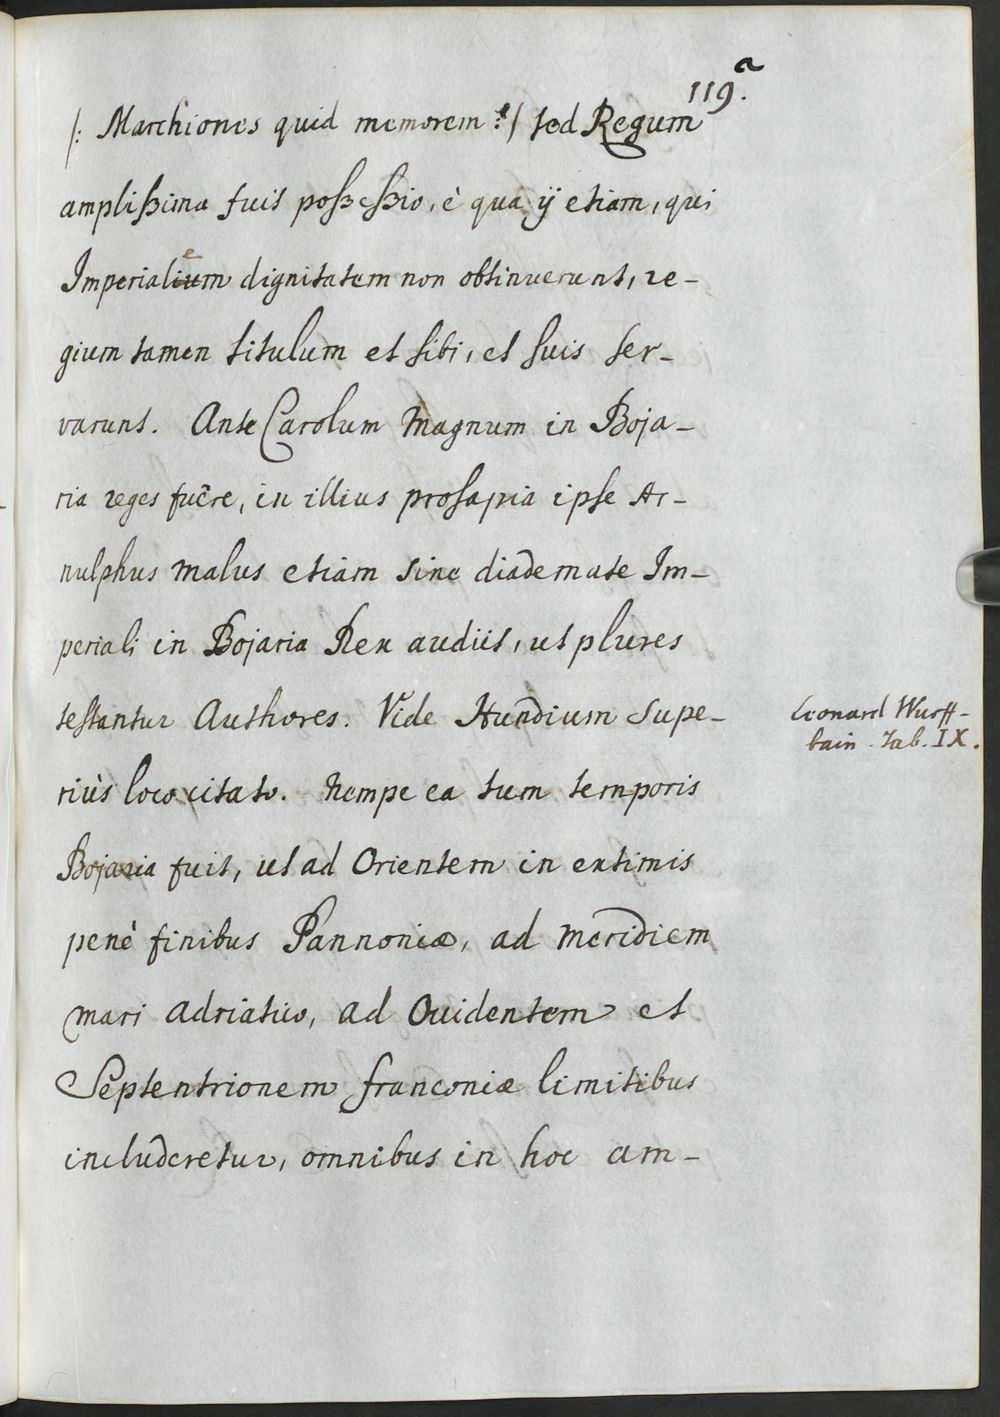 119.a
/: Marchiones quid memorem? :/ sed Regum
amplißima fuit poßeßio, è qua ÿ etiam, qui
Imperialem dignitatem non obtinuerunt, re-
gium tamen titulum et sibi, et suis ser-
varunt. Ante Carolum Magnum in Boja-
ria reges fuêre, in illius prosapia ipse Ar-
nulphus malus etiam sine diademate Im-
periali in Bojaria Rex audiit, ut plures
testantur Authores. Vide Hundium supe-
riùs loco citato. Nempe ea tum temporis
Bojaria fuit, ut ad Orientem in extimis
penè finibus Pannoniæ, ad meridiem
mari Adriatico, ad Occidentem et
Septentrionem franconiæ limitibus
includeretur, omnibus in hoc am-
Leonard Wurff-
bain. Tab. IX.